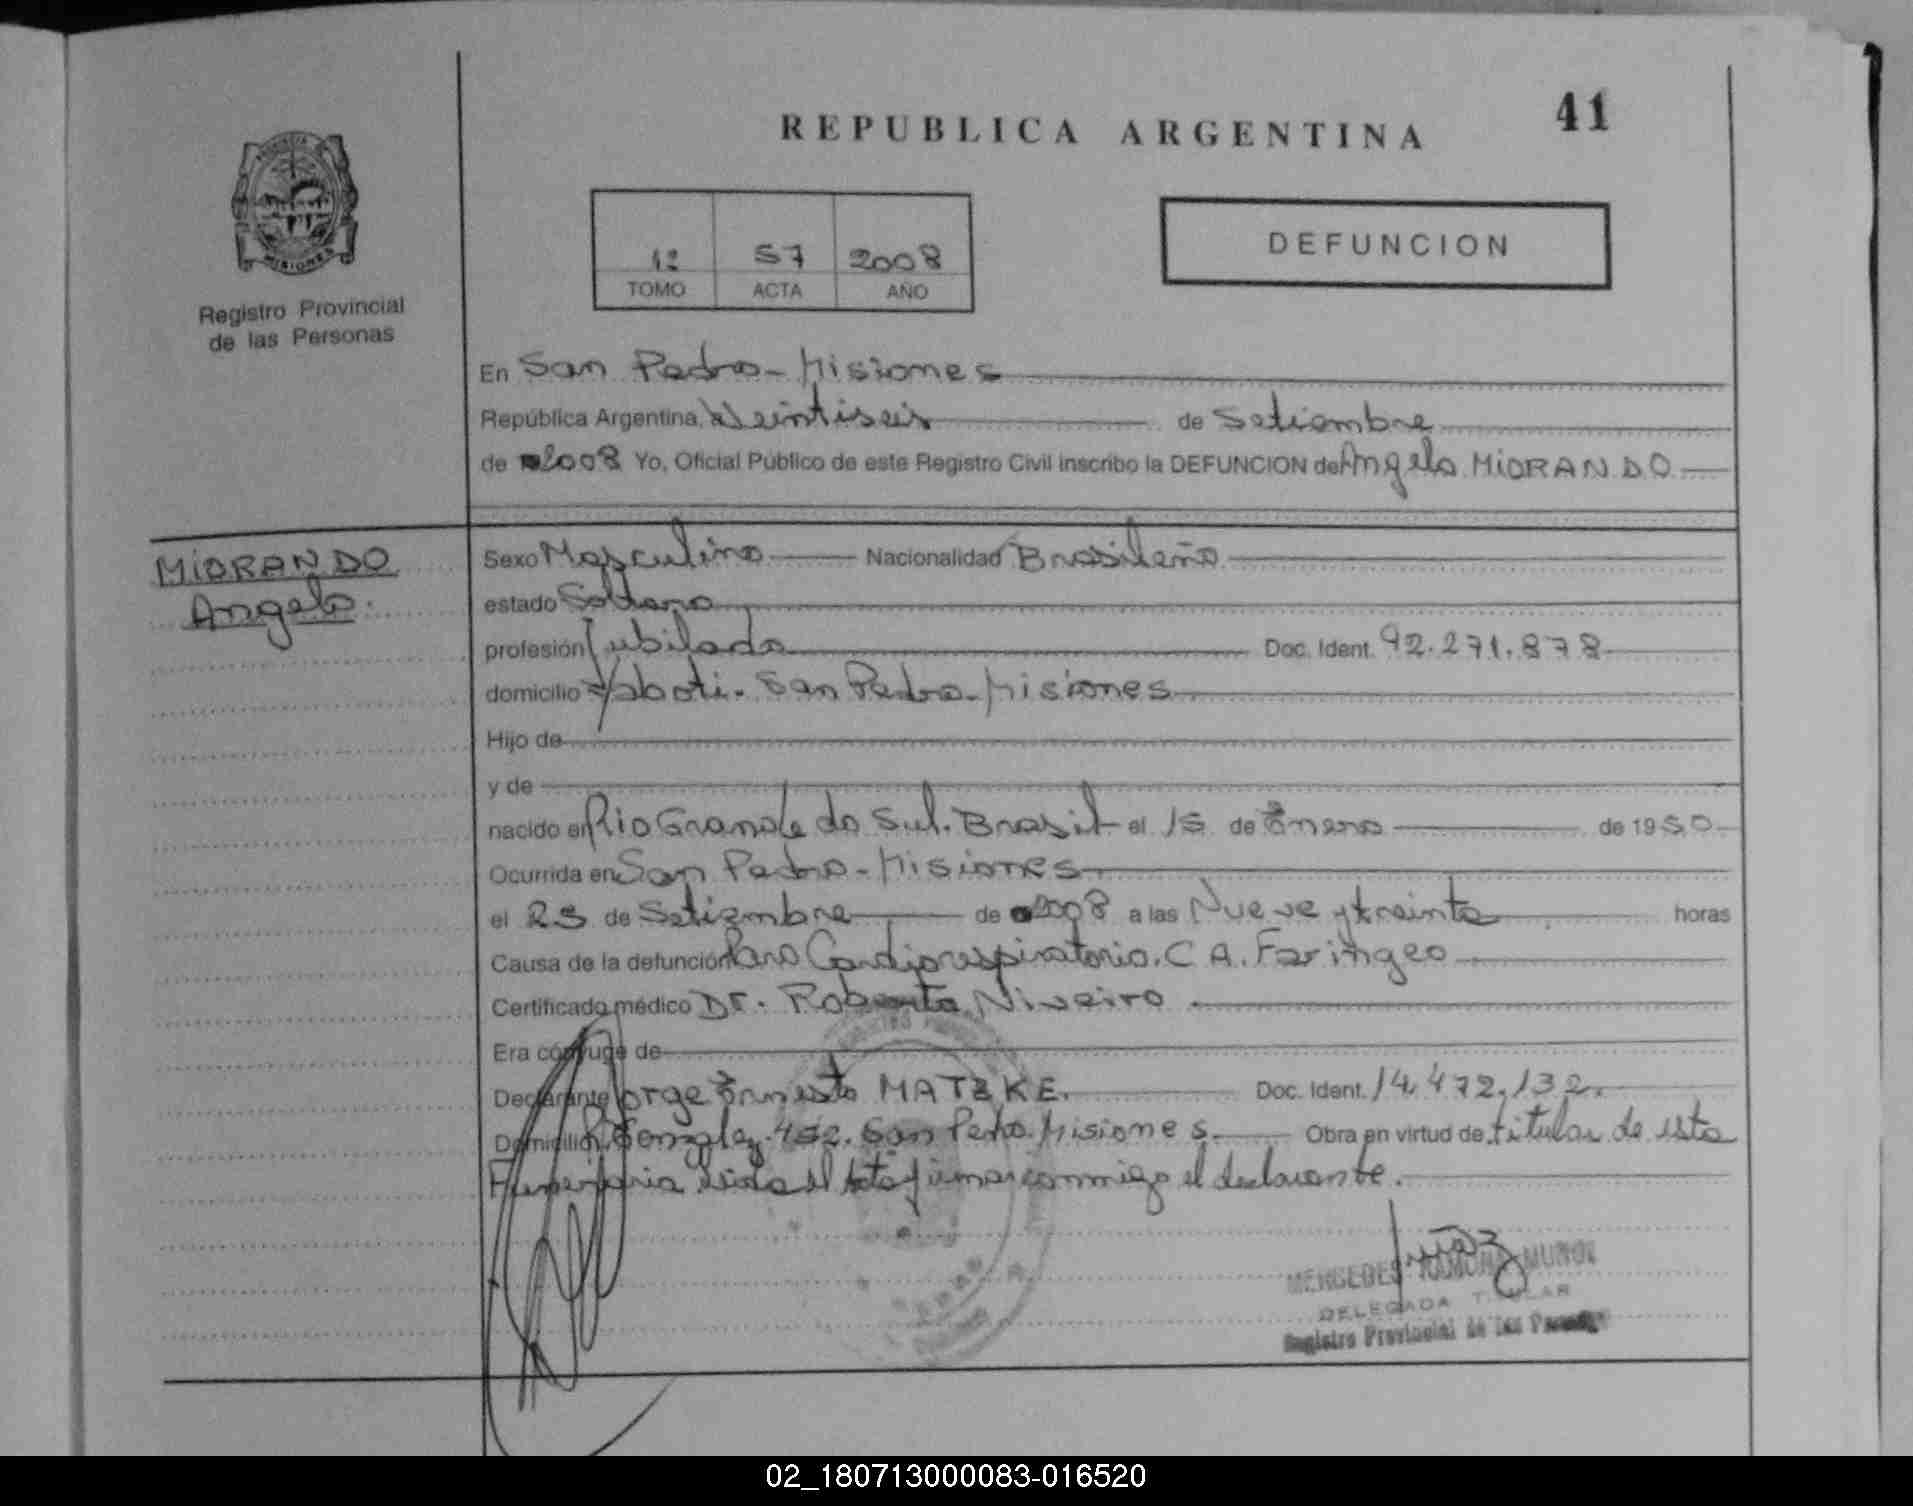 41
REPUBLICA ARGENTINA
PROVINCIA DE
MISIONES
Registro Provincial
de las Personas
12 57 2008
TOMO ACTA AÑO
DEFUNCION
En San Pedro - Misiones
República Argentina, Veintiseis de Setiembre
de 2008 Yo, Oficial Público de este Registro Civil inscribo la DEFUNCION de Angelo MiORANDO
MiORANDO
Angelo.
Sexo Masculino Nacionalidad Brasileño
estado Soltero
profesión Jubilado Doc. Ident. 92.271.878
domicilio Yaboti. San Pedro - Misiones
Hijo de
y de
nacido en Rio Grande do Sul. Brasil el 15 de Enero de 1950
Ocurrida en San Pedro - Misiones
el 25 de Setiembre de 2008 a las Nueve y treinta horas
Causa de la defunción Paro Cardiorespiratorio. C A. Faringeo
Certificado médico Dr. Roberto Niveiro
Era cónyuge de
Declarante Jorge Ernesto MATZKE. Doc. Ident. 14.472.132.
Domicilio 452. San Pedro. Misiones. Obra en virtud de titular de esta
Funeraria leida el Acta firma conmigo el declarante.
MERCEDES RAMONA MUÑOZ
DELEGADA TITULAR
Registro Provincial de las Personas
02_180713000083-016520